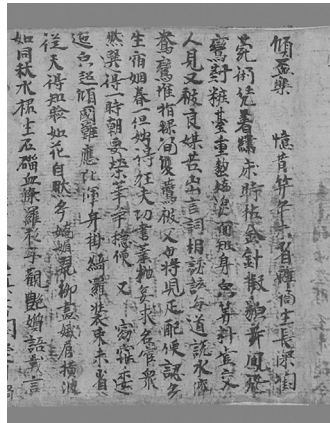 傾盃樂　憶昔笄年未省離閤生長深閨
菀閑凭著繡床時拈金針擬貌舞鳳飛
鸞對粧臺重整嬌姿面知身兒算料豈交
人見又被良媒苦出言詞相誘該每道說水際
鴛鴦惟指樑間雙鷰被父母將兒疋配便認多
生宿姻眷一但娉得狂夫功書業拋妾求名宦縱
然選得時朝要榮華爭穩便　又　窈窕逶
迤皃超傾國難應比渾身掛綺羅裝束未省
從天得知臉如花自然多嬌媚翠柳畫娥眉橫波
如同秋水裙生石榴血染羅衫子觀艷質語軟言